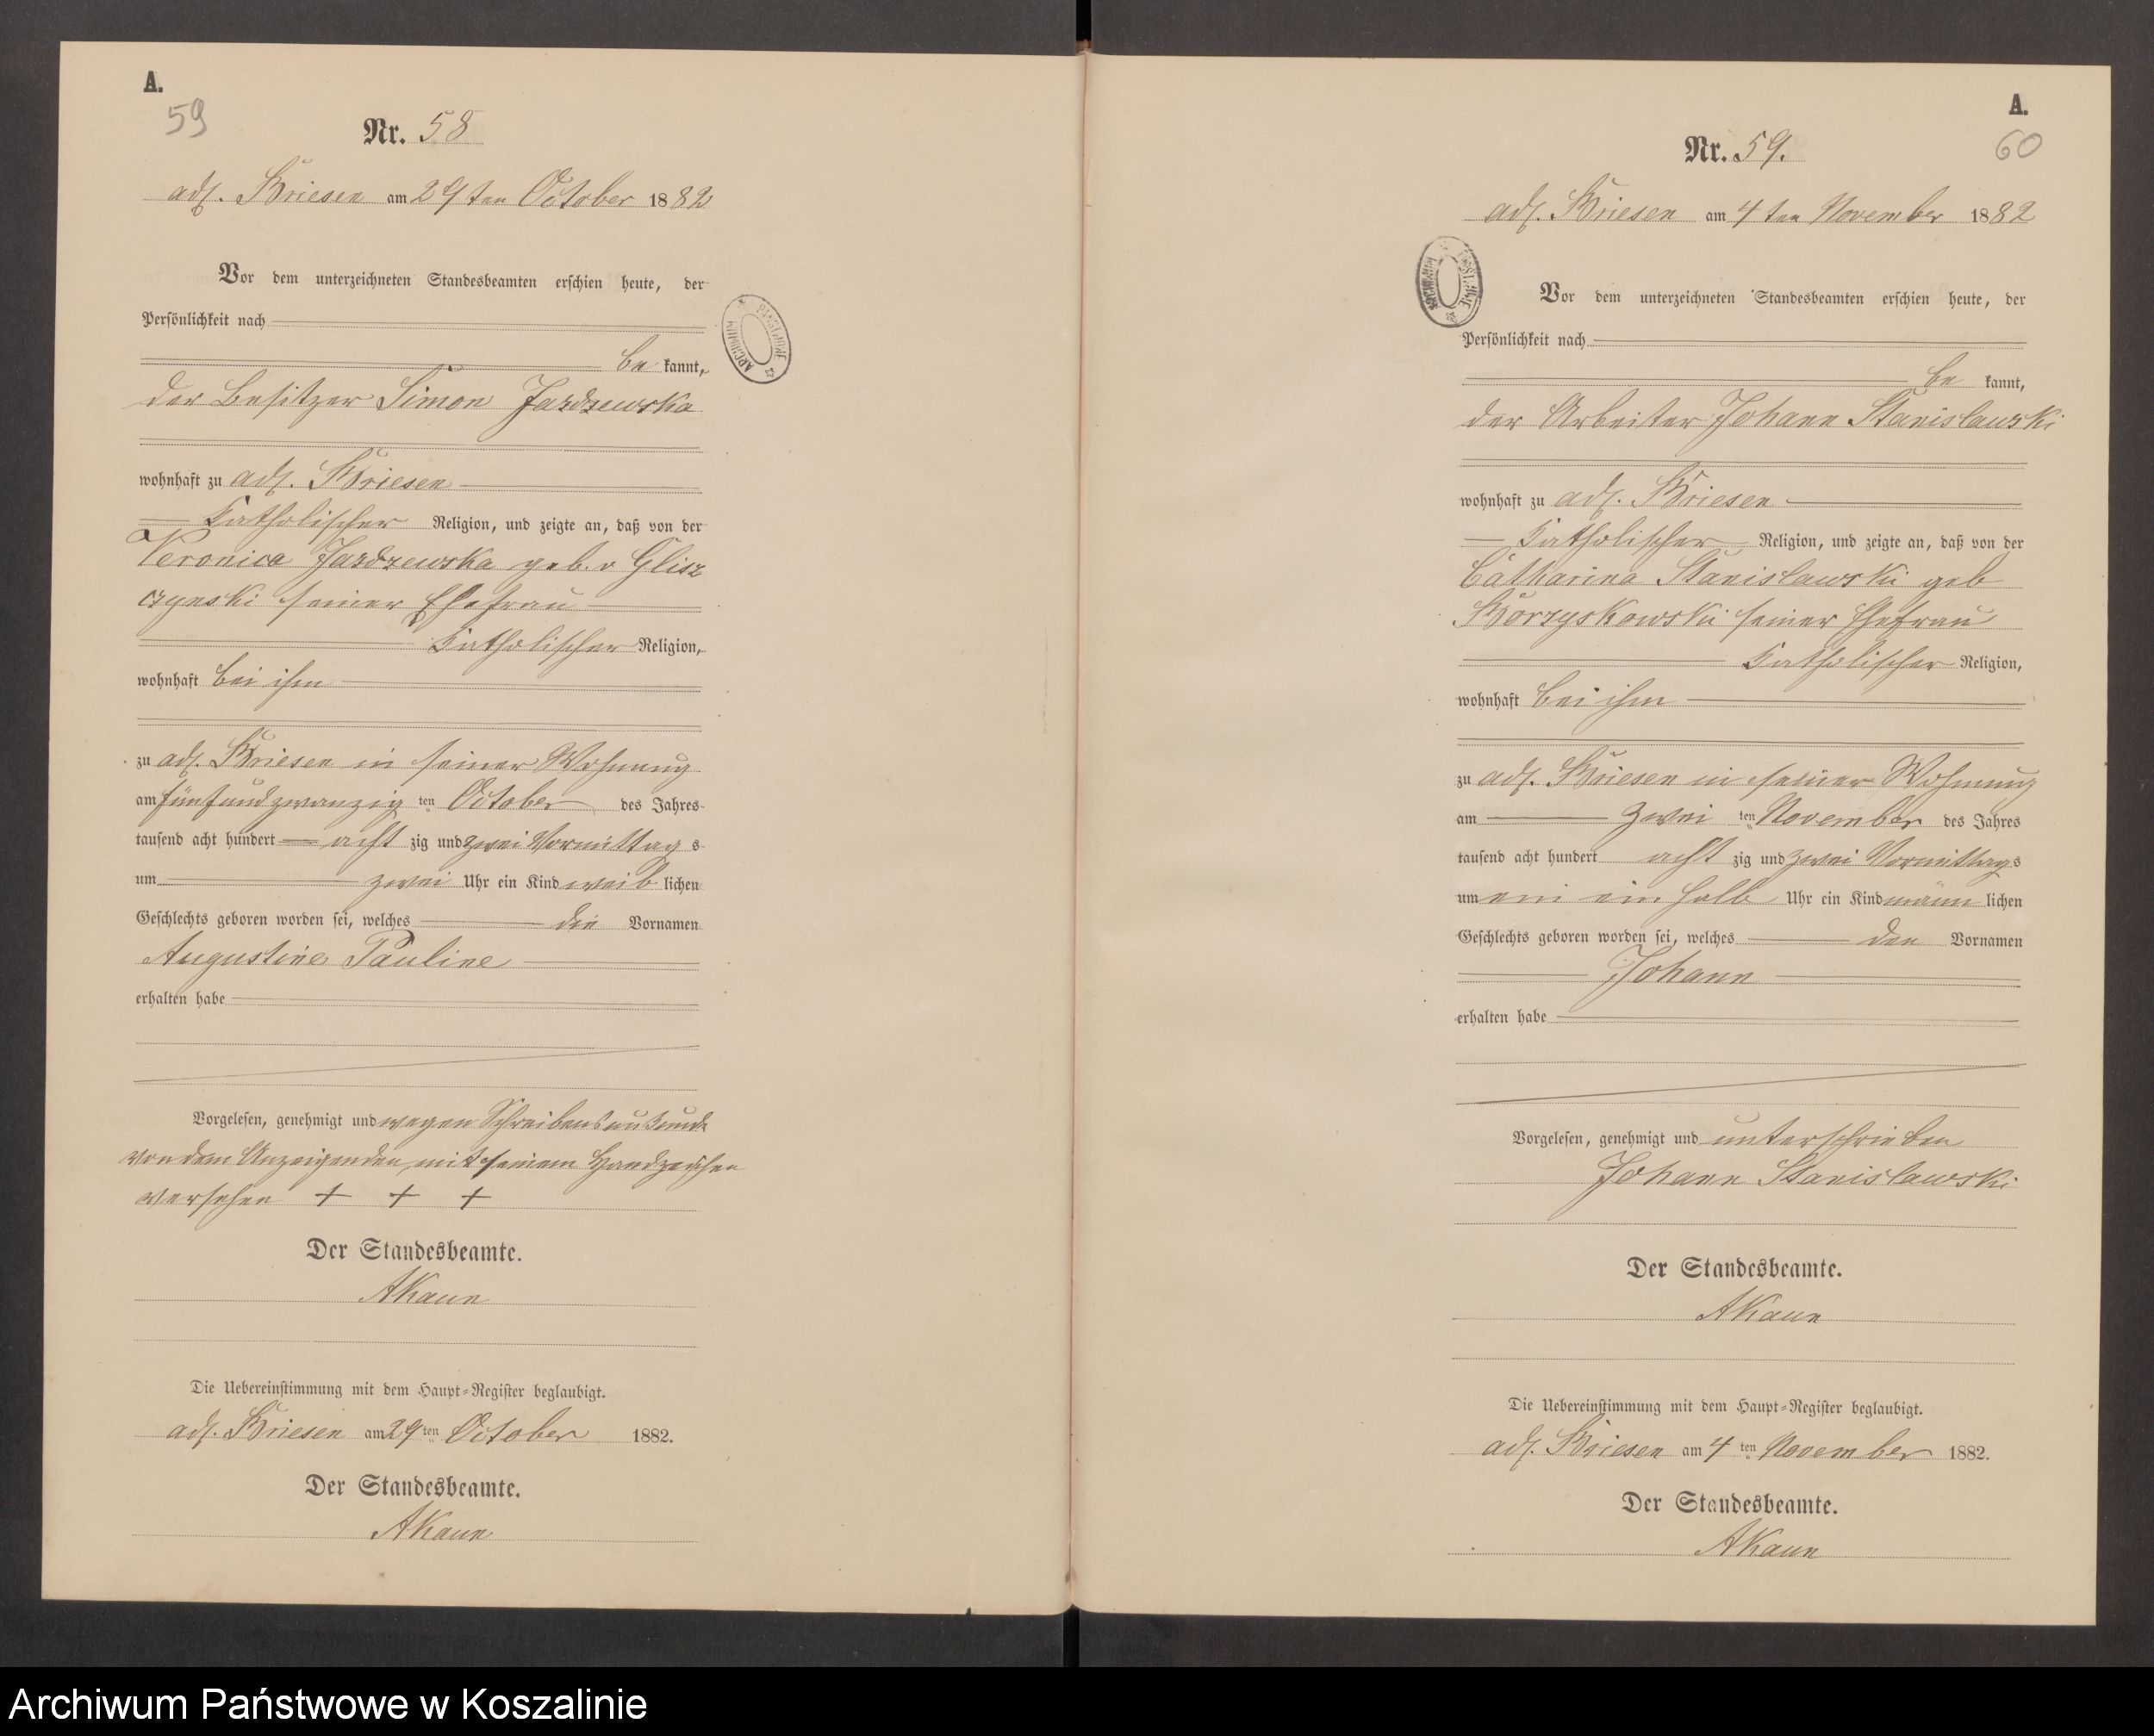 A.
59
Nr. 58
adl. Briesen am 29 ten October 1882
Vor dem unterzeichneten Standesbeamten erschien heute, der
Persönlichkeit nach
be kannt,
der Besitzer Simon Jazdzewska
wohnhaft zu adl. Briesen
Katholischer Religion, und zeigte an, daß von der
Veronica Jazdzewska geb. v Glisz
czynski seiner Ehefrau
Katholischer Religion,
wohnhaft bei ihm
zu adl. Briesen in seiner Wohnung
am fünfundzwanzig ten October des Jahres
tausend acht hundert acht zig und zwei Vormittag s
um zwei Uhr ein Kind weib lichen
Geschlechts geboren worden sei, welches die Vornamen
Augustine Pauline
erhalten habe
Vorgelesen, genehmigt und wegen Schreibensunkunde
von dem Anzeigenden mit seinem Handzeichen
versehen + + +
Der Standesbeamte.
AKaun
Die Uebereinstimmung mit dem Haupt-Register beglaubigt.
adl. Briesen am 29 ten October 1882.
Der Standesbeamte.
AKaun
ARCHIWUM PAŃSTWOWE
A.
60
Nr. 59.
adl. Briesen am 4 ten November 1882
ARCHIWUM PAŃSTWOWE
Vor dem unterzeichneten Standesbeamten erschien heute, der
Persönlichkeit nach
be kannt,
der Arbeiter Johann Stanislawski
wohnhaft zu adl. Briesen
Katholischer Religion, und zeigte an, daß von der
Catharina Stanislawski geb
Borzyskowski seiner Ehefrau
Katholischer Religion,
wohnhaft bei ihm
zu adl. Briesen in seiner Wohnung
am zwei ten November des Jahres
tausend acht hundert acht zig und zwei Vormittags
um ein ein halb Uhr ein Kind männ lichen
Geschlechts geboren worden sei, welches den Vornamen
Johann
erhalten habe
Vorgelesen, genehmigt und unterschrieben
Johann Stanislawski
Der Standesbeamte.
AKaun
Die Uebereinstimmung mit dem Haupt-Register beglaubigt.
adl. Briesen am 4 ten November 1882.
Der Standesbeamte.
AKaun
Archiwum Państwowe w Koszalinie